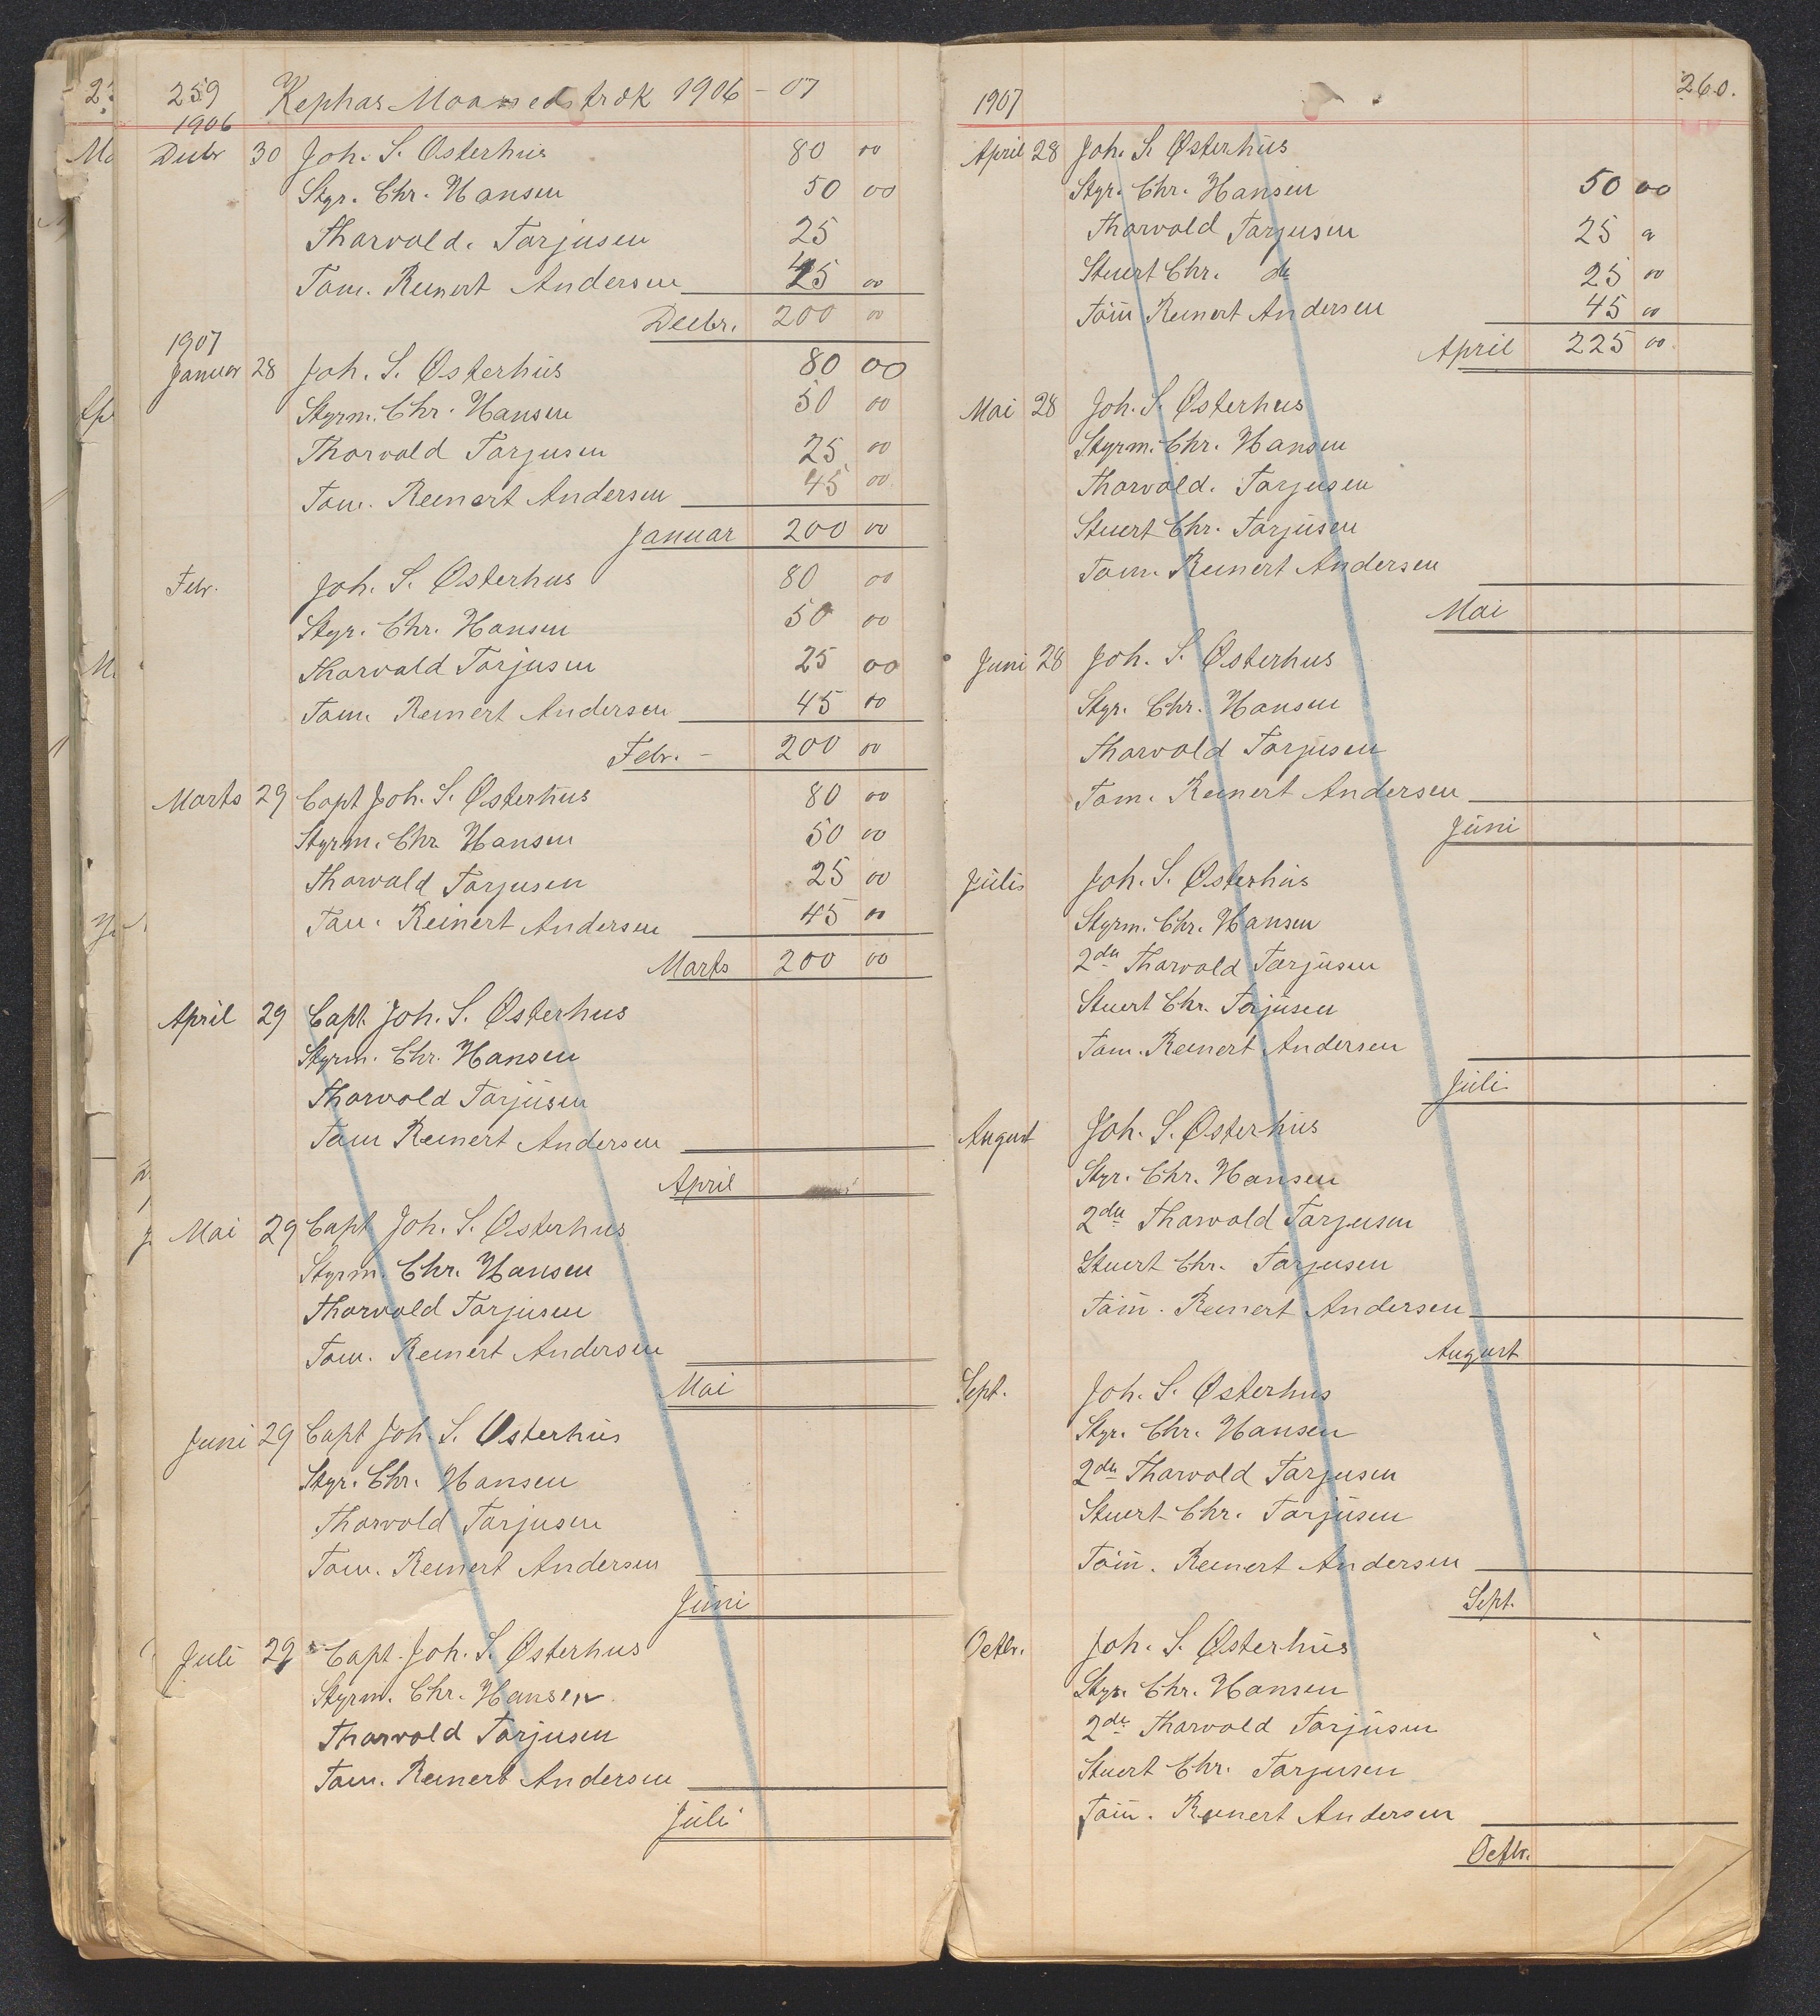 259 Kephas Maanedstræk 1906 - 07
1906
Decbr 30 Joh. S. Østerhus 80 00
Styr. Chr. Hansen 50 00
Tharvald. Tarjusen 25
Tøm. Reinert Andersen 45 00
Decbr. 200 00
1907
Januar 28 Joh. S. Østerhus 80 00
Styrm. Chr. Hansen 50 00
Thorvald Tarjusen 25 00
Tøm. Reinert Andersen 45 00
Januar 200 00
Febr. Joh. S. Østerhus 80 00
Styr. Chr. Hansen 50 00
Tharvald Tarjusen 25 00
Tøm. Reinert Andersen 45 00
Febr. - 200 00
Marts 29 Capt Joh. S. Østerhus 80 00
Styrm. Chr. Hansen 50 00
Tharvald Tarjusen 25 00
Tøm. Reinert Andersen 45 00
Marts 200 00
April 29 Capt. Joh. S. Østerhus
Styrm. Chr. Hansen
Tharvald Tarjusen
Tøm Reinert Andersen
April
Mai 29 Capt Joh. S. Østerhus
Styrm. Chr. Hansen
Tharvald Tarjusen
Tøm. Reinert Andersen
Mai
Juni 29 Capt Joh. S. Østerhus
Styr. Chr. Hansen
Tharvold Tarjusen
Tøm. Reinert Andersen
Juni
Juli 29 Capt. Joh. S. Østerhus
Styrm. Chr. Hansen
Tharvald Tarjusen
Tøm. Reinert Andersen
Juli
260.
1907
April 28 Joh. S. Østerhus
Styr. Chr. Hansen 50 00
Tharvald Tarjusen 25
Stuert Chr. do 25 00
Tøm Reinert Andersen 45 00
April 225 00
Mai 28 Joh. S. Østerhus
Styrm. Chr. Hansen
Tharvald. Tarjusen
Stuert Chr. Tarjusen
Tøm. Reinert Andersen
Mai
Juni 28 Joh. S. Østerhus
Styr. Chr. Hansen
Tharvald Tarjusen
Tøm. Reinert Andersen
Juni
Juli Joh. S. Østerhus
Styrm. Chr. Hansen
2den Tharvald Tarjusen
Stuert Chr. Tarjusen
Tøm. Reinert Andersen
Juli
August Joh. S. Østerhus
Styr. Chr. Hansen
2den Tharvald Tarjusen
Stuert Chr. Tarjusen
Tøm. Reinert Andersen
August
Sept. Joh. S. Østerhus
Styr. Chr. Hansen
2den Tharvald Tarjusen
Stuert Chr. Tarjusen
Tøm. Reinert Andersen
Sept.
Octbr. Joh. S. Østerhus
Styr. Chr. Hansen
2de Tharvald Tarjusen
Stuert Chr. Tarjusen
Tøm. Reinert Andersen
Octbr.